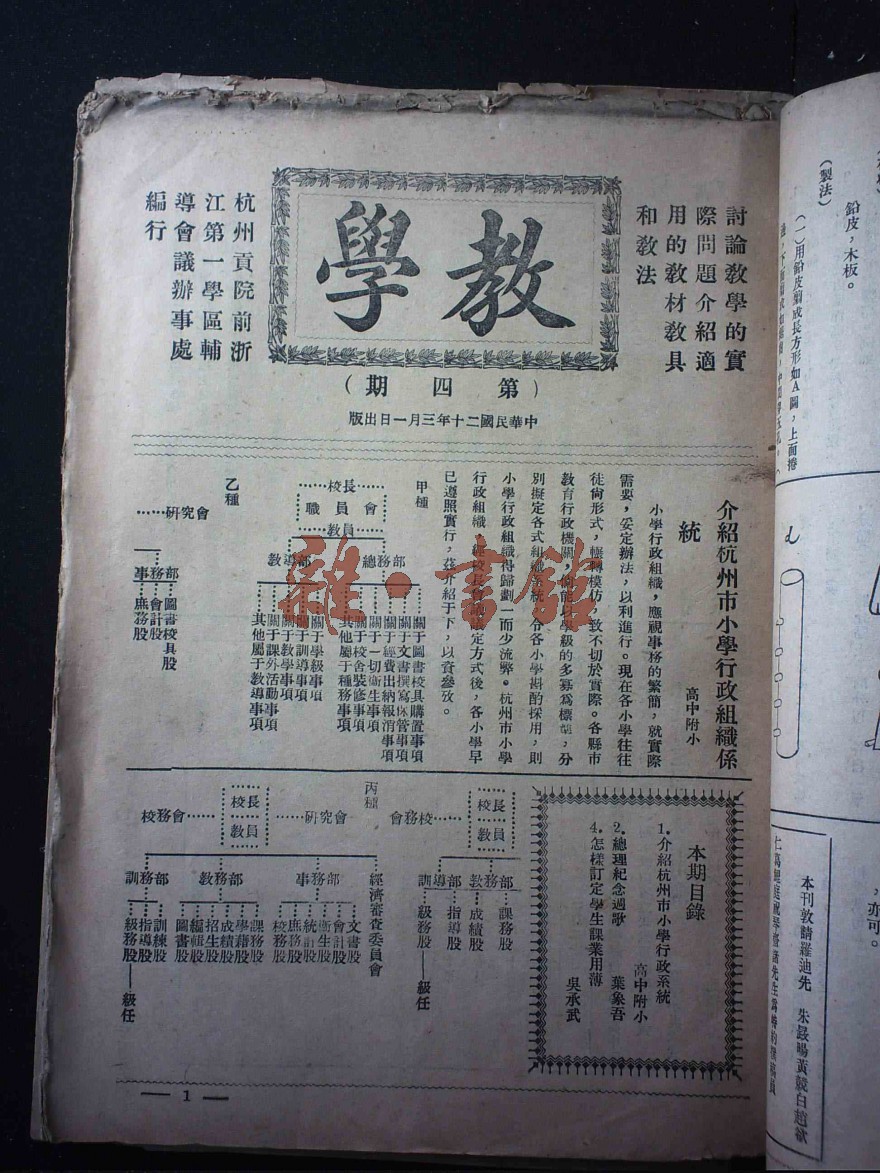 教學
(第四期)
中華民國二十年三月一日出版
討論教學的實
際問題介紹適
用的教材教具
和教法
杭州貢院前浙
江第一學區輔
導會議辦事處
編行
介紹杭州市小學行政組織係
統
高中附小
小學行政組織,應視事務的繁簡,就實際
需要,妥定辦法,以利進行。現在各小學往往
徒尙形式,輾轉模仿,致不切於實際。各縣市
教育行政機關,倘能以學級的多寡爲標準,分
別擬定各式組織系統,令各小學斟酌採用,則
小學行政組織得歸劃一而少流弊。杭州市小學
行政組織,經校長會議議定方式後,各小學早
已遵照實行,茲介紹于下,以資參攷。
甲種
校長
職員會
教員
總務部
關于圖書校具購置事項
關于文書撰寫保管事項
關于經費出納報消事項
關于一切衞生事項
關于校舍裝修事項
其他屬于種務事項
教導部
關于學級事項
關于訓導事項
關于教學事項
關于課外活動事項
其他屬于教導事項
乙種
研究會
事務部
圖書校具股
會計股
庶務股
校長
教員
校務會
教務部
課務股
成績股
訓導部
指導股
級務股——級任
丙種
研究會
校長
教員
校務會
經濟審查委員會
事務部
文書股
會計股
衞生股
統計股
庶務股
校務股
教務部
課務股
學藉股
成績股
招生股
編輯股
圖書股
訓務部
訓練股
指導股
級務股——級任
本期目錄
1.介紹杭州市小學行政系統
高中附小
2.總理紀念週歌
葉象吾
4.怎樣訂定學生課業用薄
吳承武
— 1 —
雜·書館
(製法)
鉛皮,木板。
(一)用鉛皮剪成長方形如A圖,上面捲
,亦可。
本刊敦請羅迪先